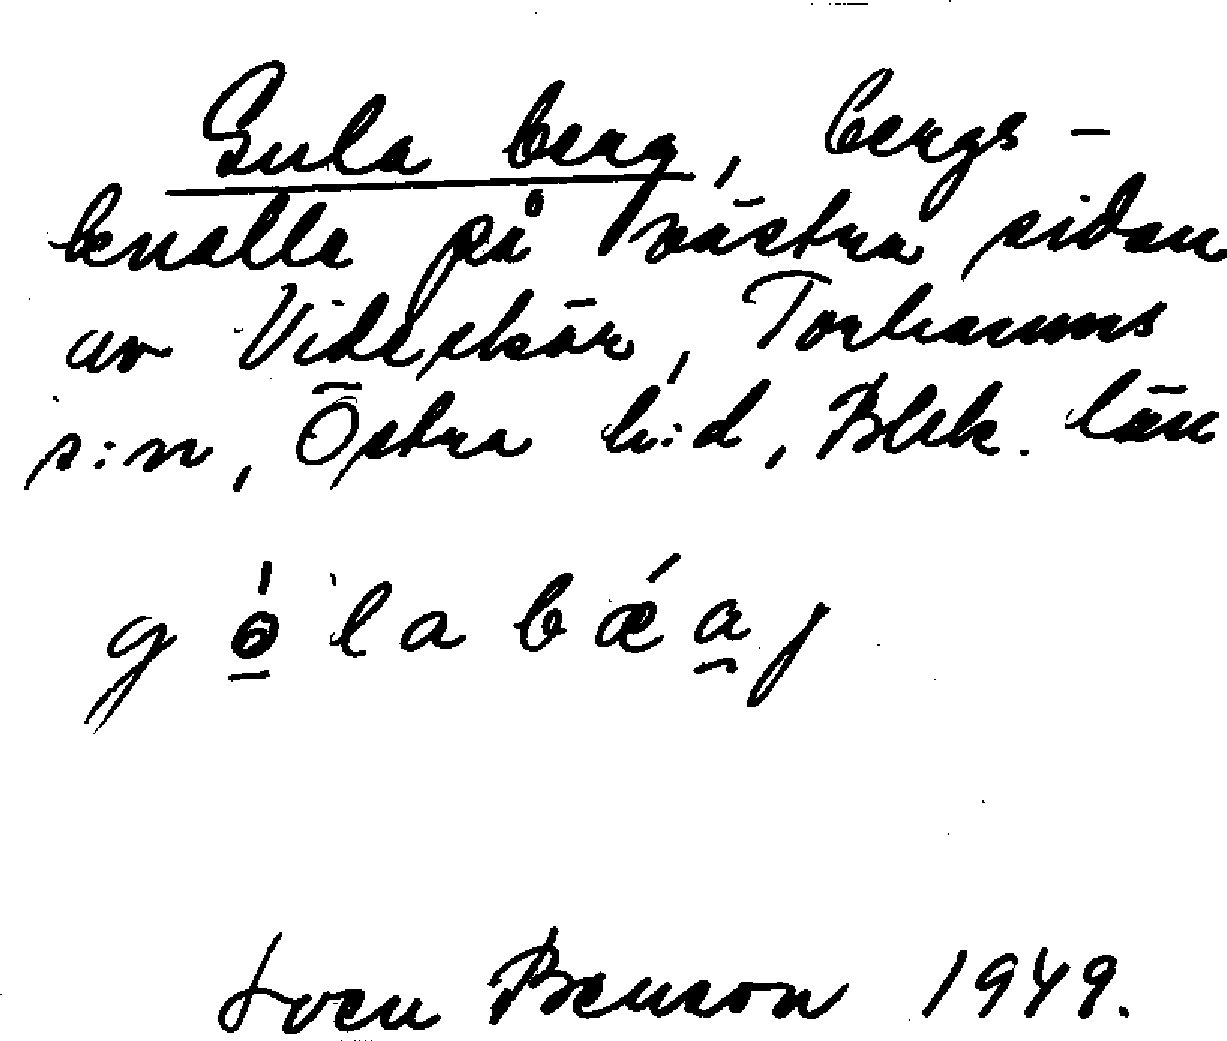 Gula berg, bergs-
knalle på västra sidan
av Videskär, Torhamns
s:n, Östra h:d, Blek. län
gó̱labǽa̯ȷ
Sven Benson 1949.